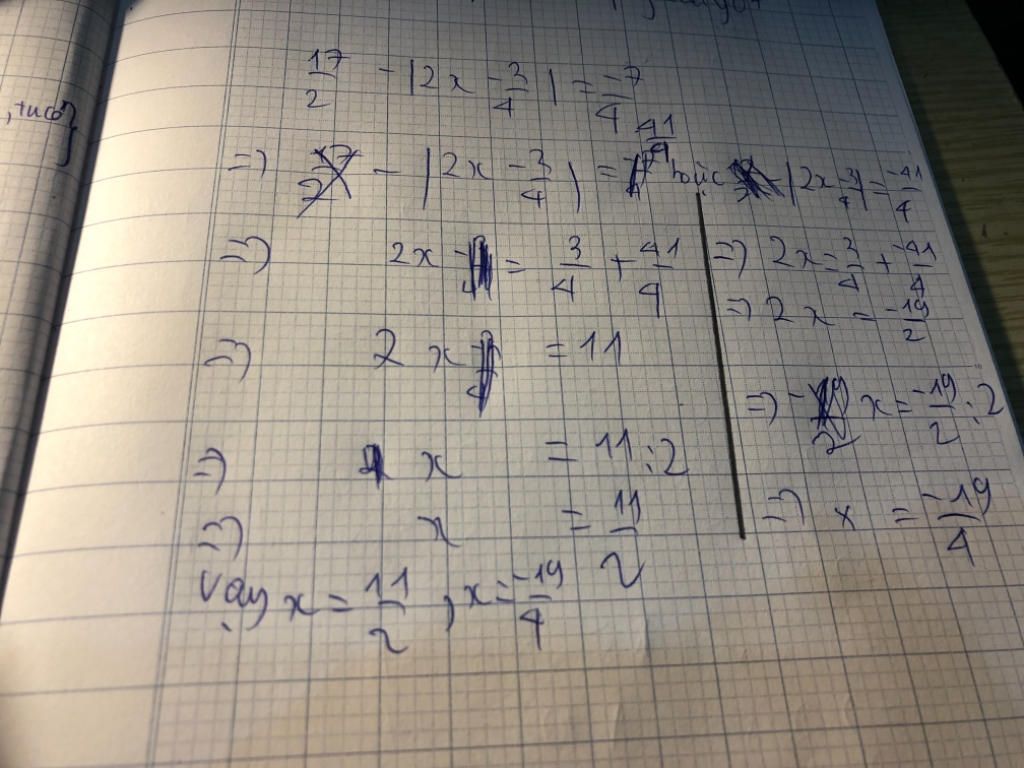 ,tico}
17/2 - |2x - 3/4| = -7/4
=> 17/2 - |2x - 3/4| = 41/4 hoặc - |2x - 3/4| = -41/4
=> 2x = 3/4 + 41/4
=> 2x = 11
=> x = 11 : 2
=> x = 11/2
=> 2x = 3/4 + -41/4
=> 2x = -19/2
=> x = -19/2 : 2
=> x = -19/4
Vậy x = 11/2 , x = -19/4